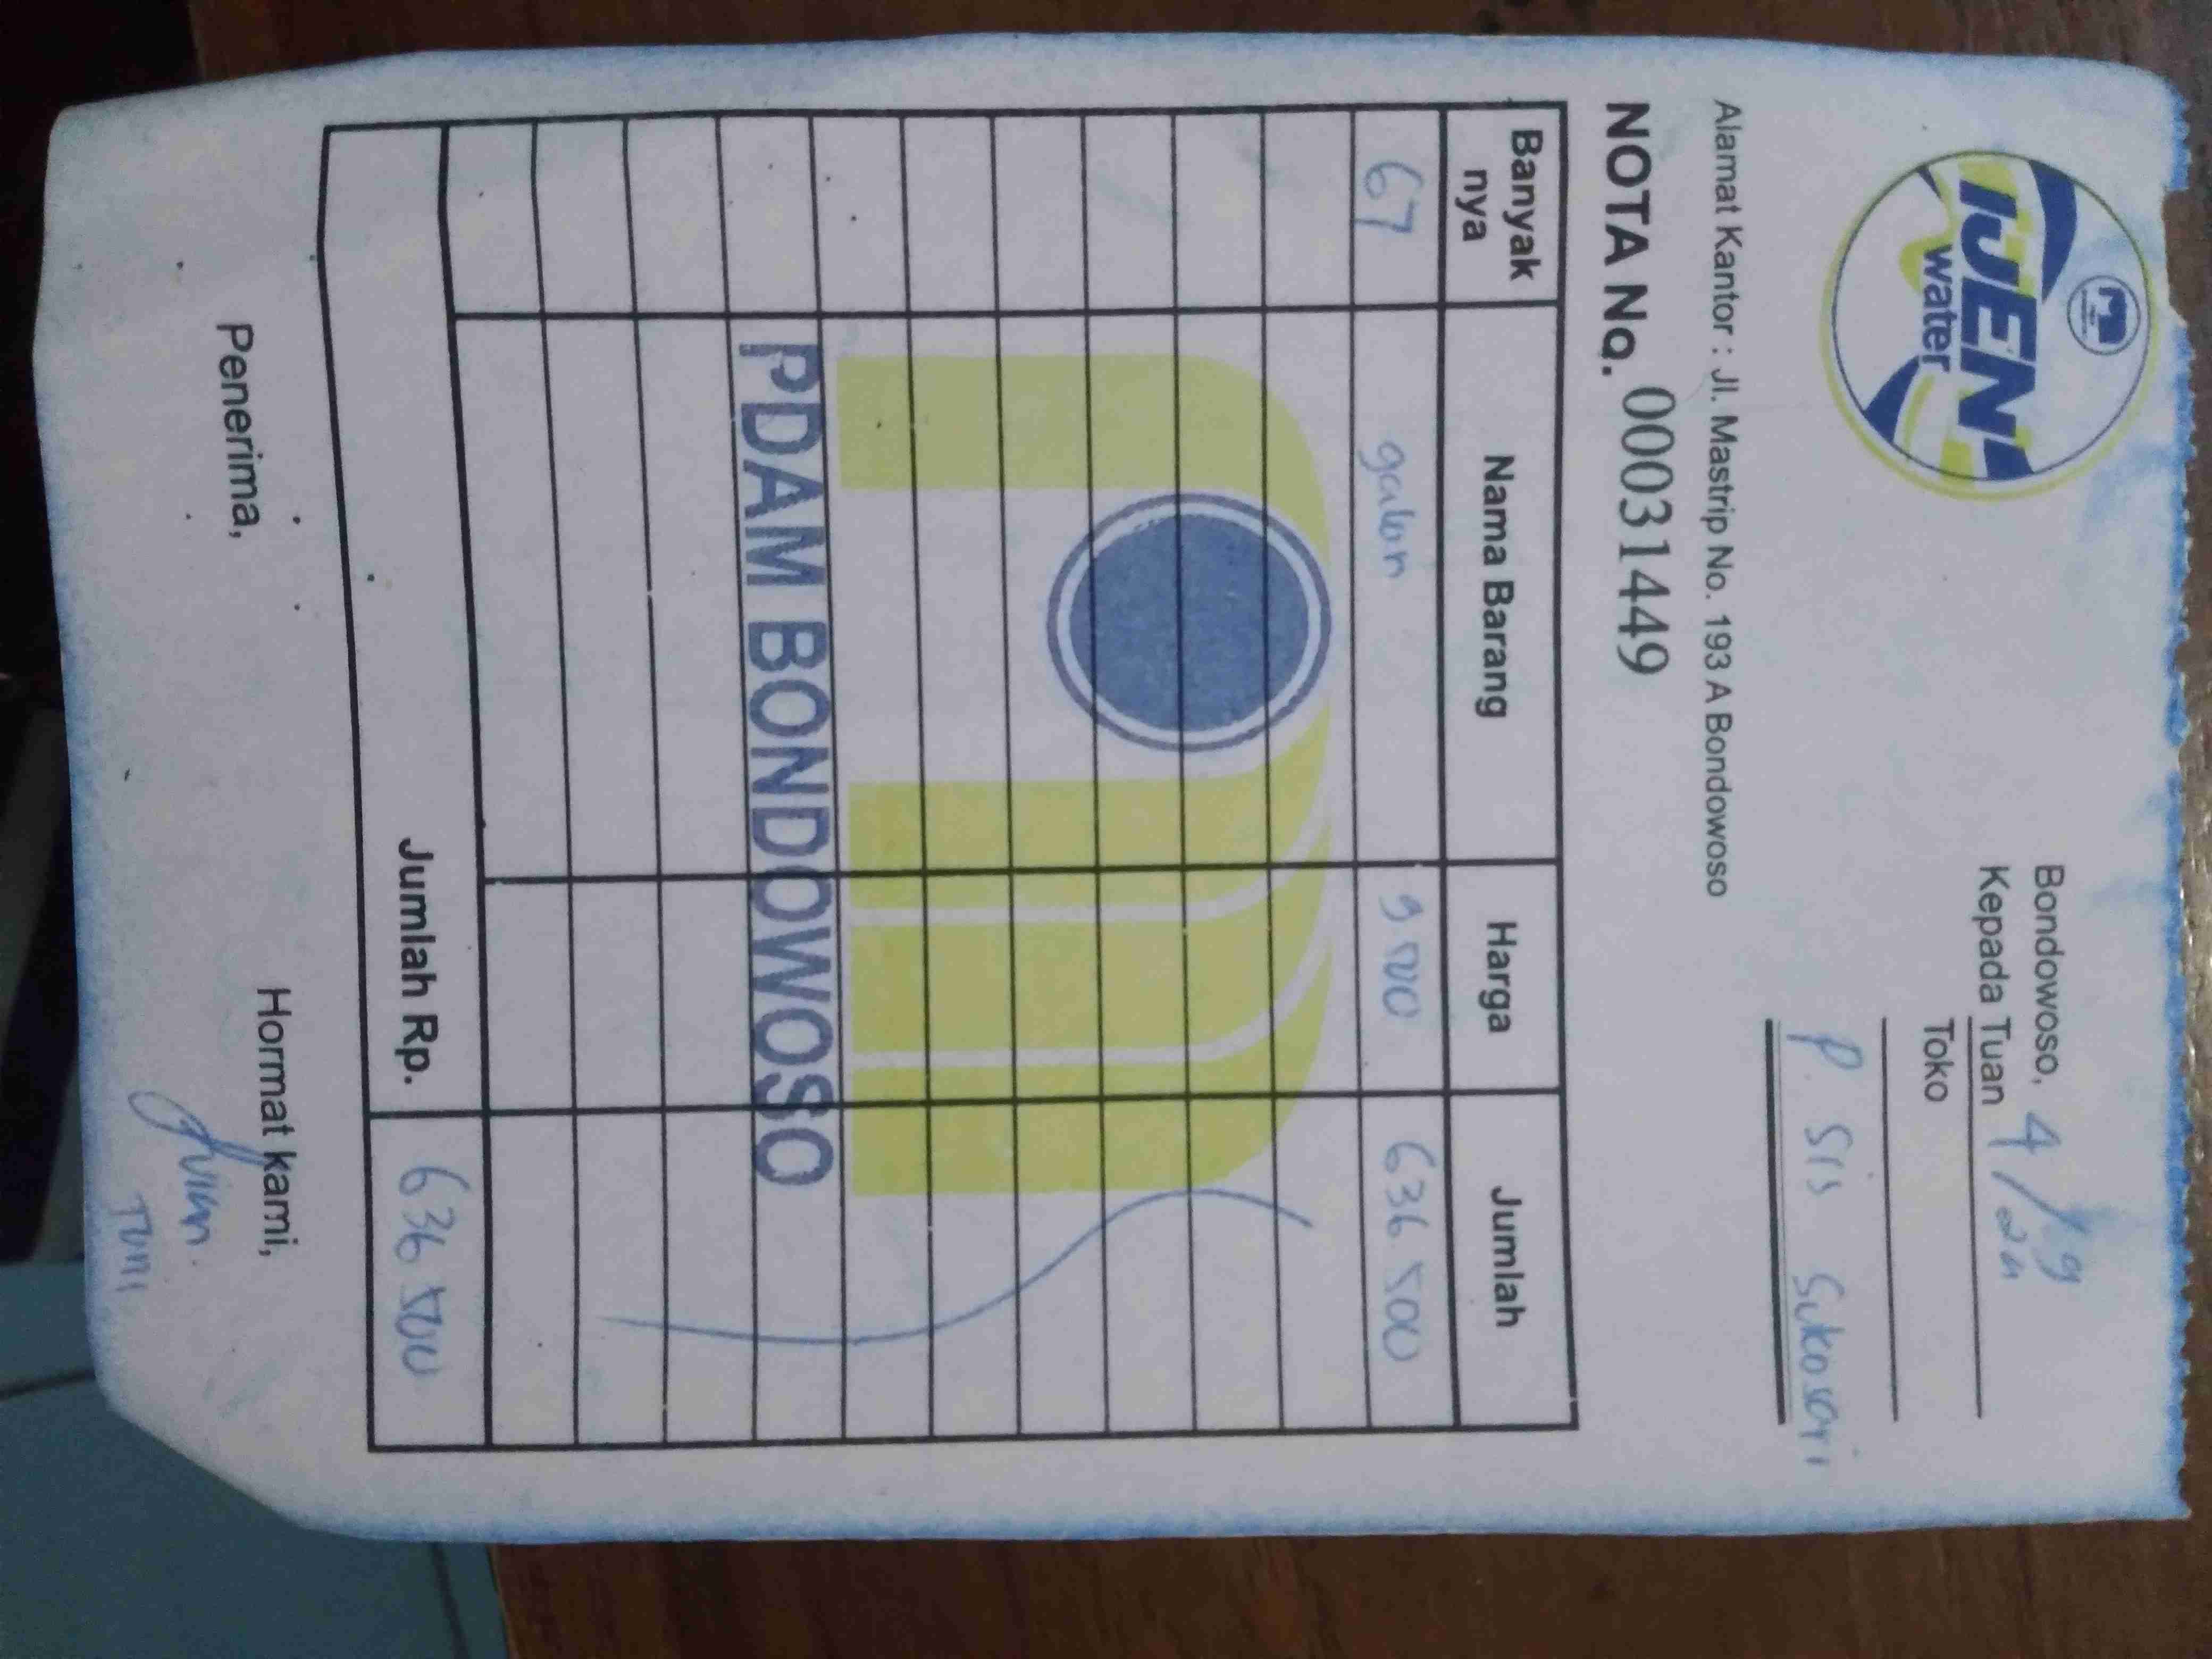 IJEN
water
Bondowoso, 4/9 24
Kepada Tuan
Toko
P. Sis Sukosari
Alamat Kantor : Jl. Mastrip No. 193 A Bondowoso
NOTA No. 00031449
Banyak nya Nama Barang Harga Jumlah
67 galon 9 500 636 500
PDAM BONDOWOSO
Jumlah Rp. 636 500
Penerima, Hormat kami,